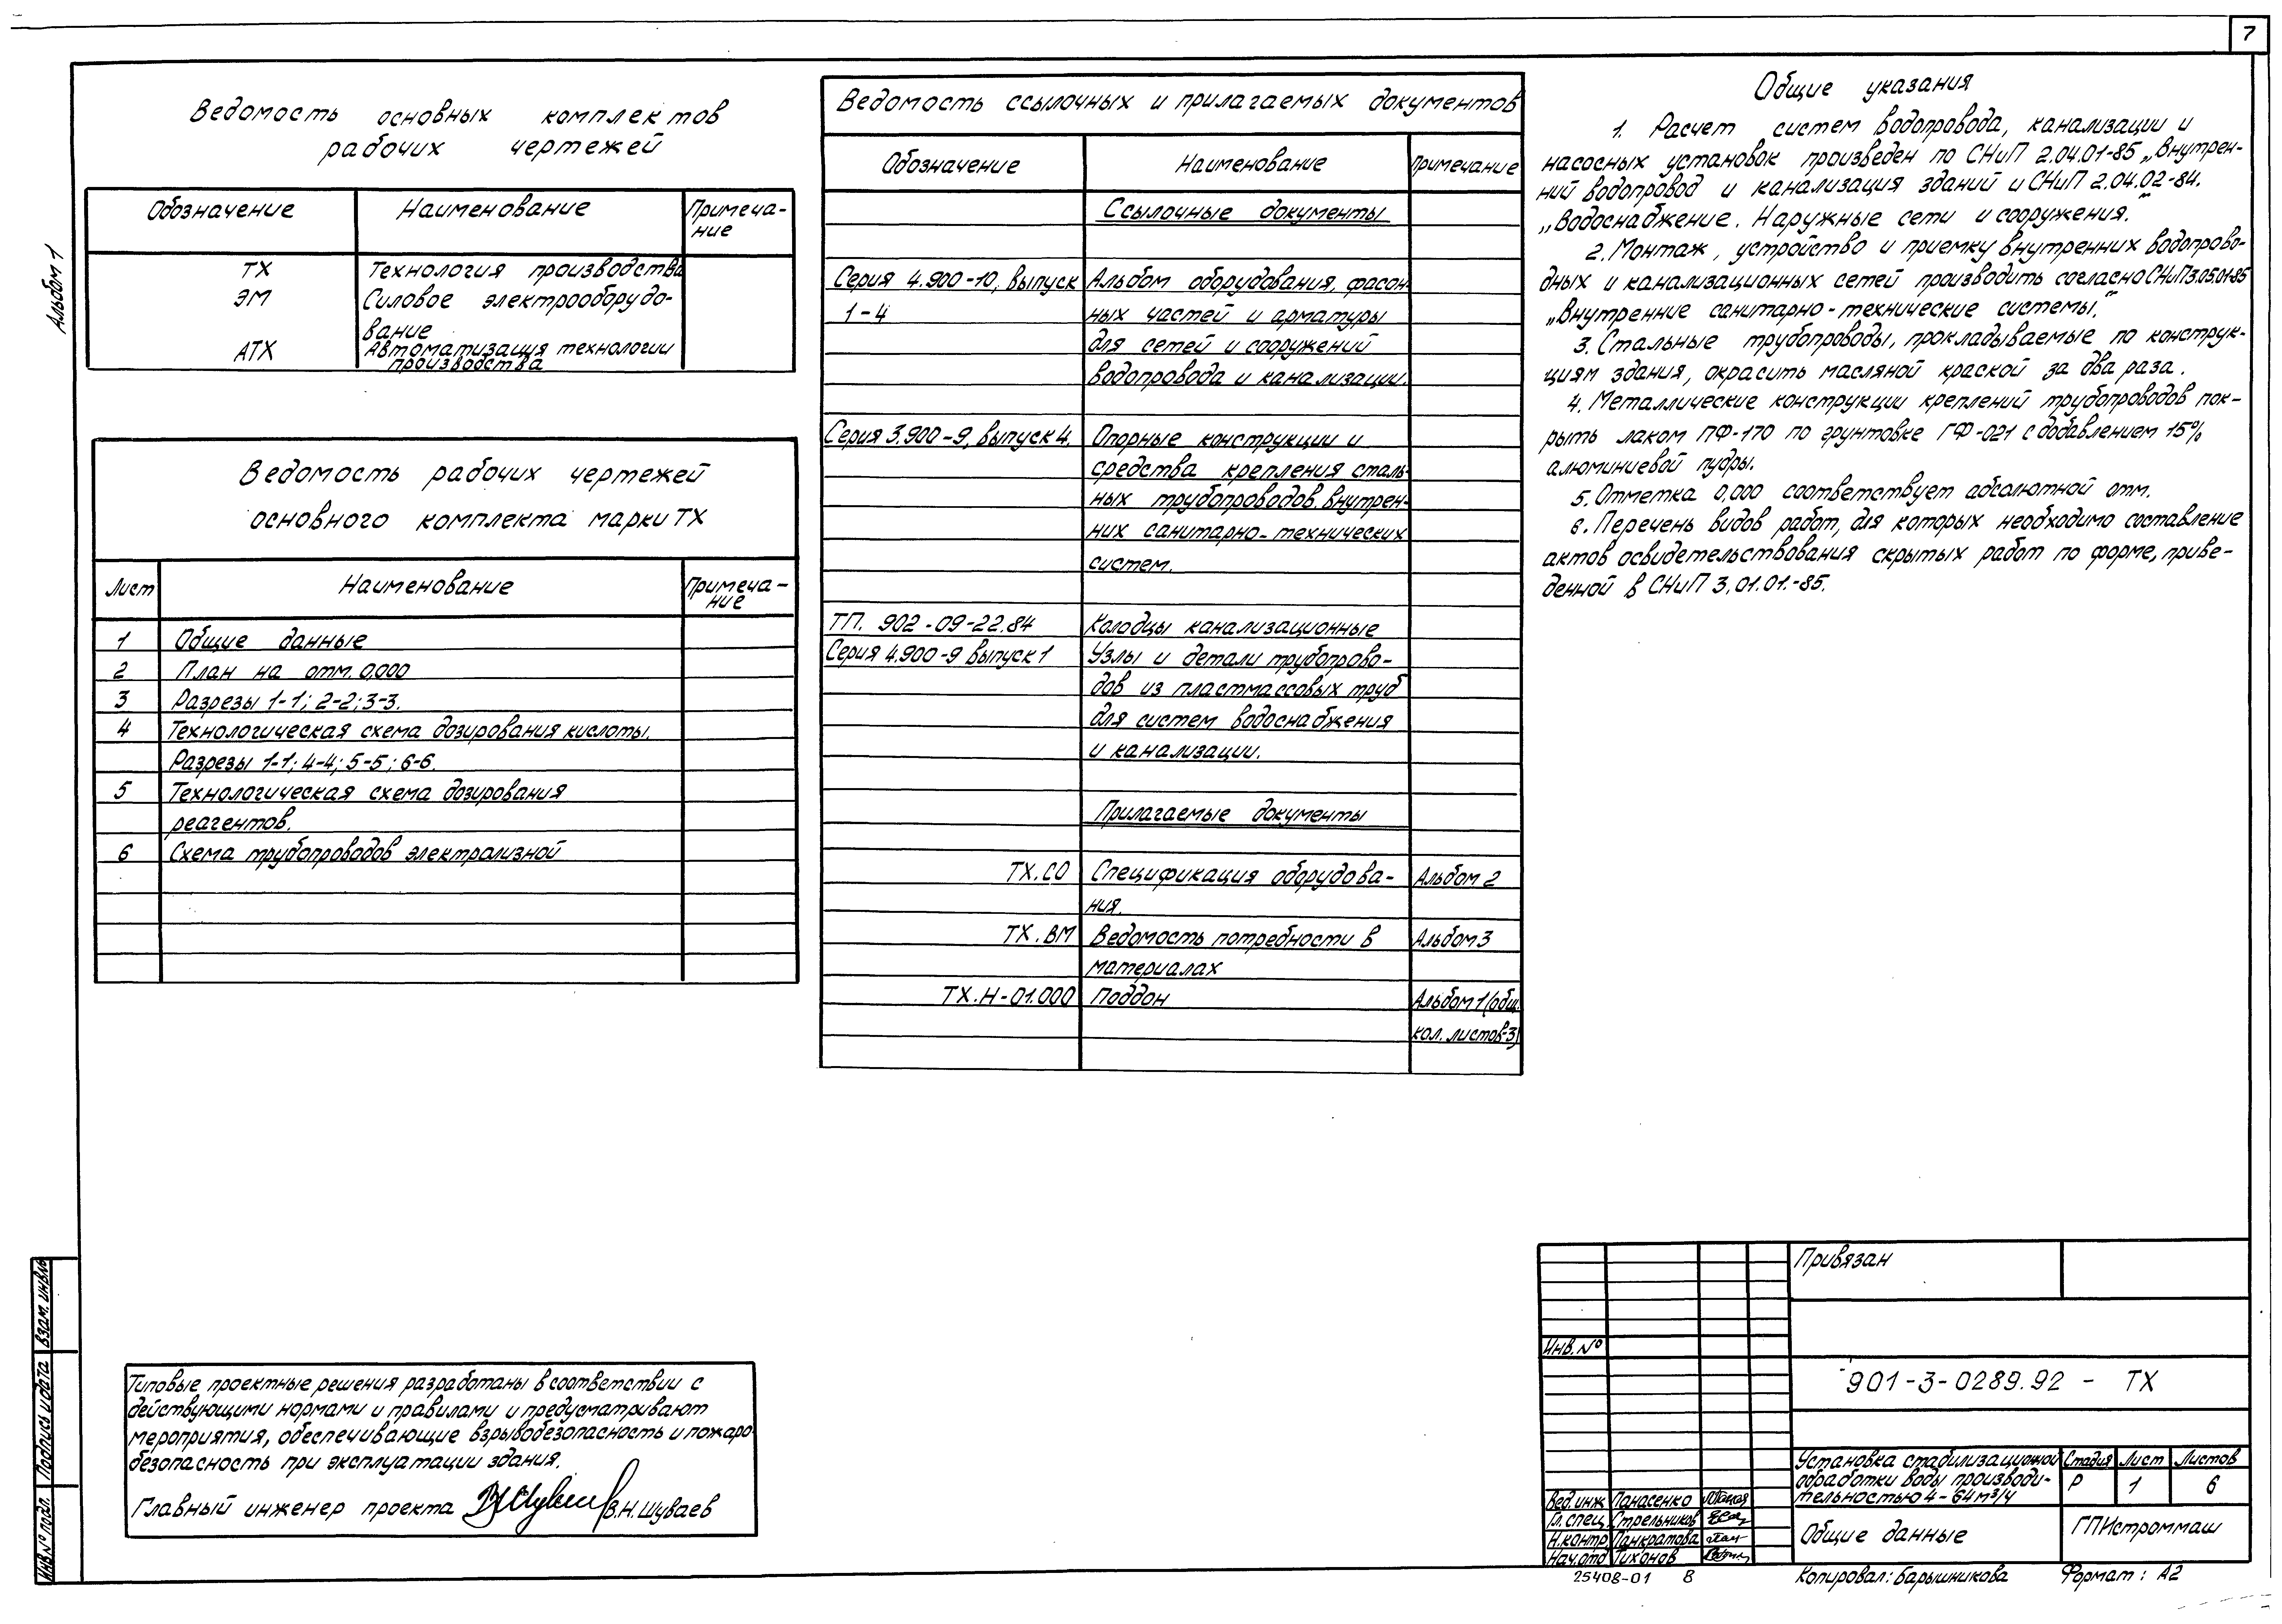 7
Альбом 1
Ведомость основных комплектов
рабочих чертежей
Обозначение Наименование Примеча-
ние
ТХ Технология производства
ЭМ Силовое электрооборудо-
вание
АТХ Автоматизация технологии
производства
Ведомость рабочих чертежей
основного комплекта марки ТХ
Лист Наименование Примеча-
ние
1 Общие данные
2 План на отм. 0,000
3 Разрезы 1-1; 2-2; 3-3.
4 Технологическая схема дозирования кислоты.
Разрезы 1-1; 4-4; 5-5; 6-6.
5 Технологическая схема дозирования
реагентов.
6 Схема трубопроводов электролизной
Ведомость ссылочных и прилагаемых документов
Обозначение Наименование Примечание
Ссылочные документы
Серия 4.900-10, выпуск Альбом оборудования, фасон-
1-4 ных частей и арматуры
для сетей и сооружений
водопровода и канализации.
Серия 3.900-9, выпуск 4. Опорные конструкции и
средства крепления сталь-
ных трубопроводов внутрен-
них санитарно-технических
систем.
ТП. 902-09-22.84 Колодцы канализационные
Серия 4.900-9 выпуск 1 Узлы и детали трубопрово-
дов из пластмассовых труб
для систем водоснабжения
и канализации.
Прилагаемые документы
ТХ.СО Спецификация оборудова- Альбом 2
ния.
ТХ.ВМ Ведомость потребности в Альбом 3
материалах
ТХ.Н-01.000 Поддон Альбом 1 (общ.
кол. листов-3)
Общие указания
1. Расчет систем водопровода, канализации и
насосных установок произведен по СНиП 2.04.01-85 „Внутрен-
ний водопровод и канализация зданий и СНиП 2.04.02-84.
„Водоснабжение. Наружные сети и сооружения."
2. Монтаж, устройство и приемку внутренних водопрово-
дных и канализационных сетей производить согласно СНиП 3.05.01-85
„Внутренние санитарно-технические системы."
3. Стальные трубопроводы, прокладываемые по конструк-
циям здания, окрасить масляной краской за два раза.
4. Металлические конструкции креплений трубопроводов пок-
рыть лаком ПФ-170 по грунтовке ГФ-021 с добавлением 15%
алюминиевой пудры.
5. Отметка 0,000 соответствует абсолютной отм.
6. Перечень видов работ, для которых необходимо составление
актов освидетельствования скрытых работ по форме, приве-
денной в СНиП 3.01.01.-85.
Типовые проектные решения разработаны в соответствии с
действующими нормами и правилами и предусматривают
мероприятия, обеспечивающие взрывобезопасность и пожаро-
безопасность при эксплуатации здания.
Главный инженер проекта В.Н. Шуваев
Взам. инв.№
Подпись и дата
Инв.№ подл.
Привязан
Инв. №
901-3-0289.92 - ТХ
Установка стабилизационной
обработки воды производи-
тельностью 4-64 м³/ч
Стадия Лист Листов
Р 1 6
Вед. инж Панасенко
Гл. спец. Стрельников
Н.контр Панкратова
Нач.отд Тихонов
Общие данные
ГПИстроммаш
25408-01 8
Копировал: Барышникова Формат: А2